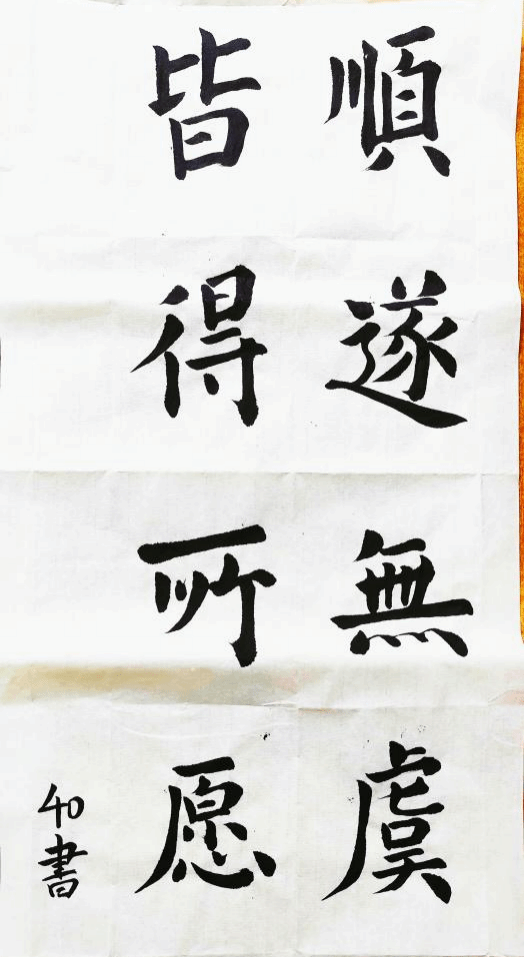 順遂無虞
皆得所愿
40書